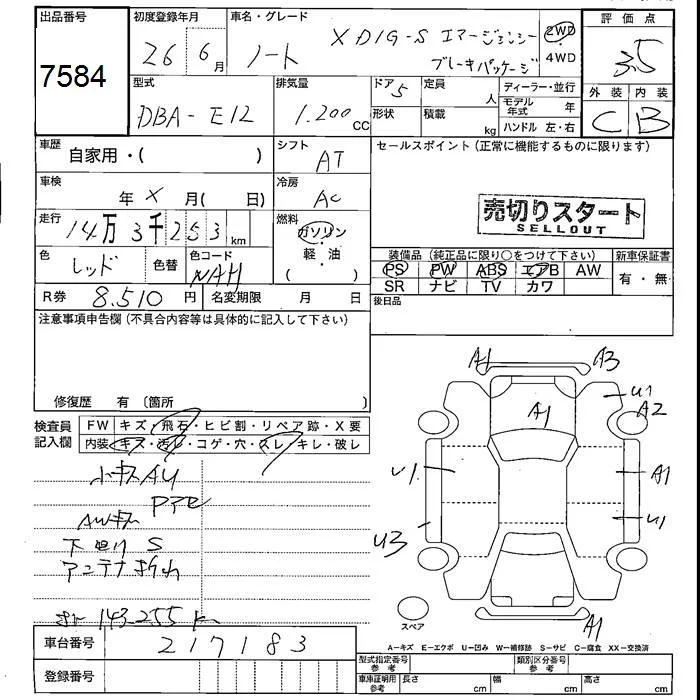 出品番号 初度登録年月 車名・グレード 評価点
7584 26 6月 ノート X DIG-S エマージェンシー 2WD 3.5
ブレーキパッケージ ・4WD
型式 排気量 ドア 5 定員 人 ディーラー・並行 外装 内装
DBA-E12 1.200 CC 形状 積載 kg モデル年式 年 C B
ハンドル 左・右
車歴 自家用・( ) シフト AT セールスポイント(正常に機能するものに限ります)
車検 年 X 月( 日) 冷房 AC
売切りスタート
SELLOUT
走行 14万3千253 km 燃料 ガソリン
軽・油
( )
色 レッド 色替 色コード NAH 装備品(純正品に限り○をつけて下さい) 新車保証書
PS PW ABS エアB AW 有・無
SR ナビ TV カワ
R券 8.510 円 名変期限 月 日 後日品
注意事項申告欄(不具合内容等は具体的に記入して下さい)
修復歴 有〔箇所
検査員記入欄 FW キズ・飛石・ヒビ割・リペア跡・X要
内装 キズ・汚レ・コゲ・穴・スレ・キレ・破レ
小キズAU
AWキズ
S
アンテナ折れ
143.255 km
A1 A3
U1
A2
A1
U1 A1
U3 U1
A1
スペア
A-キズ E-エクボ U-凹み W-補修跡 S-サビ C-腐食 XX-交換済
車台番号 217183
型式指定番号 参考 類別区分番号 参考
登録番号 車庫証明用 参考 長さ cm 幅 cm 高さ cm